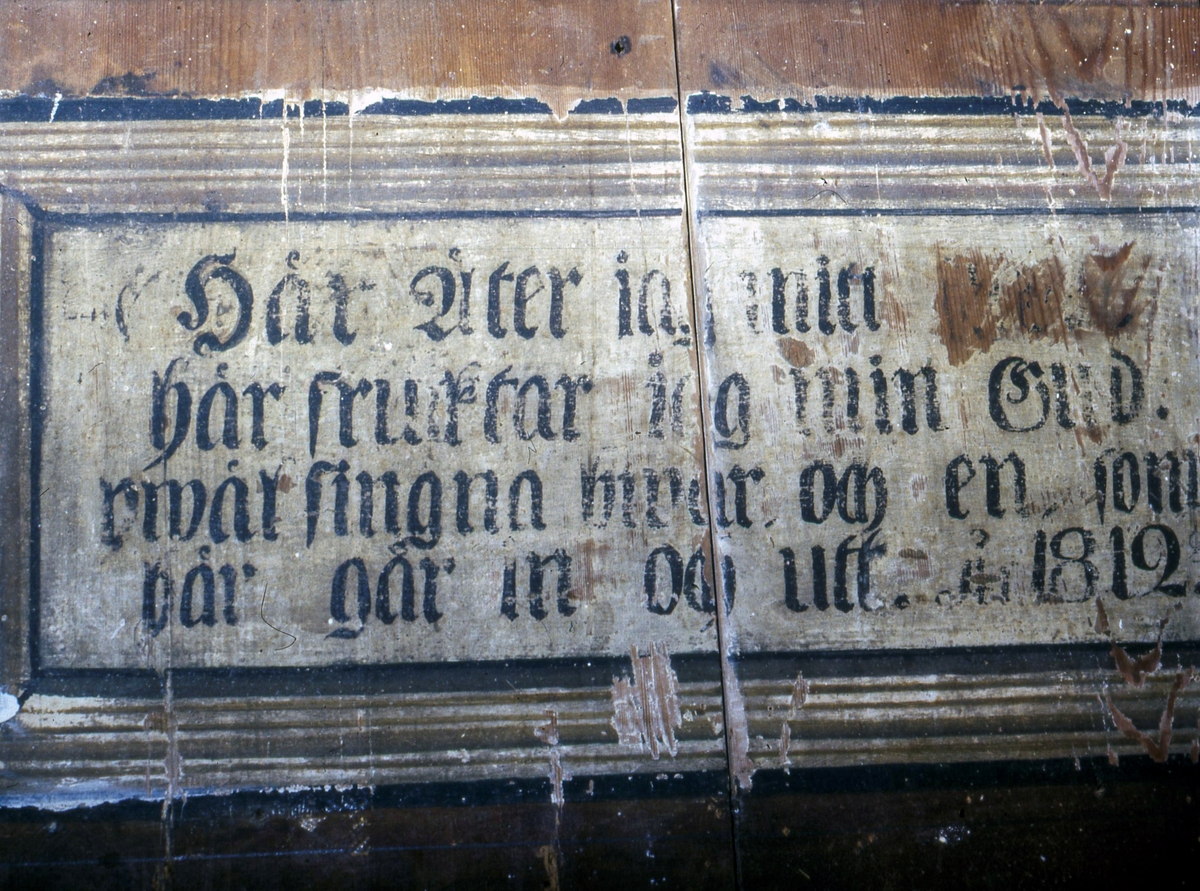 Här Äter iag mitt
här fruktar iag min Gud.
wälsingna hwar, och en, som
här går in och utt. År 1812